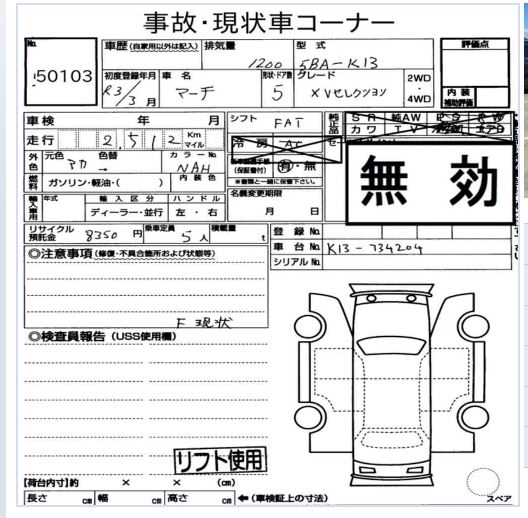 事故・現状車コーナー
No. 50103
車歴 (自家用以外は記入) 排気量 1200 型式 5BA-K13
評価点
初度登録年月 R3/3月 車名 マーチ 形状・ドア数 5 グレード XVセレクション 2WD・4WD
内装補助評価
車検 年 月 シフト FAT 純正品
走行 2,512 Km マイル 冷房 AC
カワ TV
外色 元色 アカ 色替 → カラーNo. NAH
(保証書付) 有・無
燃料 ガソリン・軽油・( ) 内装色
※書類と一緒に保管下さい。
無効
輸入車用 年式 輸入区分 ディーラー・並行 ハンドル 左・右
名義変更期限 月 日
リサイクル預託金 8350円 乗車定員 5人 積載量 t
登録No.
車台No. K13-734204
シリアルNo.
◎注意事項 (修復・不具合箇所および状態等)
F 現状
◎検査員報告 (USS使用欄)
リフト使用
【荷台内寸】約 × × (cm)
長さ cm 幅 cm 高さ cm ←(車検証上の寸法)
スペア